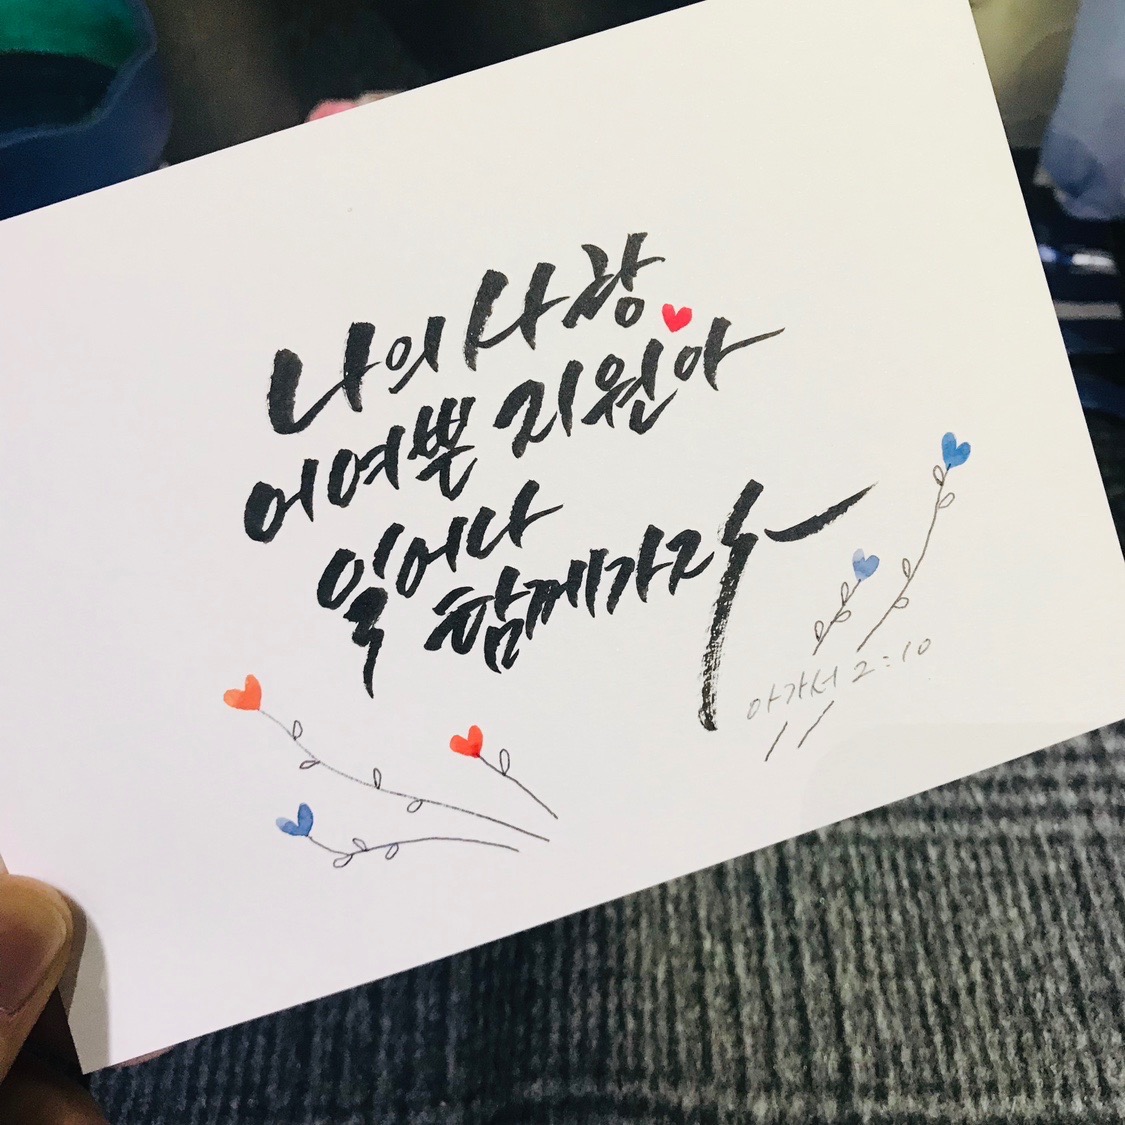 나의 사랑
어여쁜 지원아
일어나
함께가자
아가서 2:10